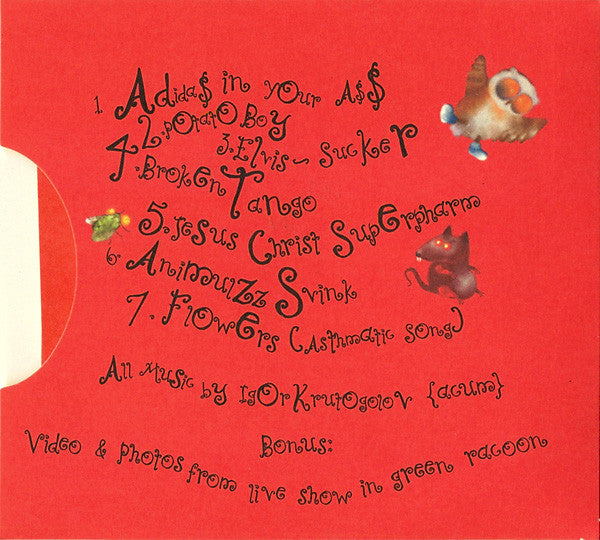 1 Adida$ in your A$$
2. potato Boy
3. Elvis - Sucker
4. Broken Tango
5. Jesus Christ Superpharm
6. Animulzz Svink
7. Flowers (Asthmatic song)
All Music by Igor Krutogolov {acum}
Bonus:
Video & photos from live show in green racoon